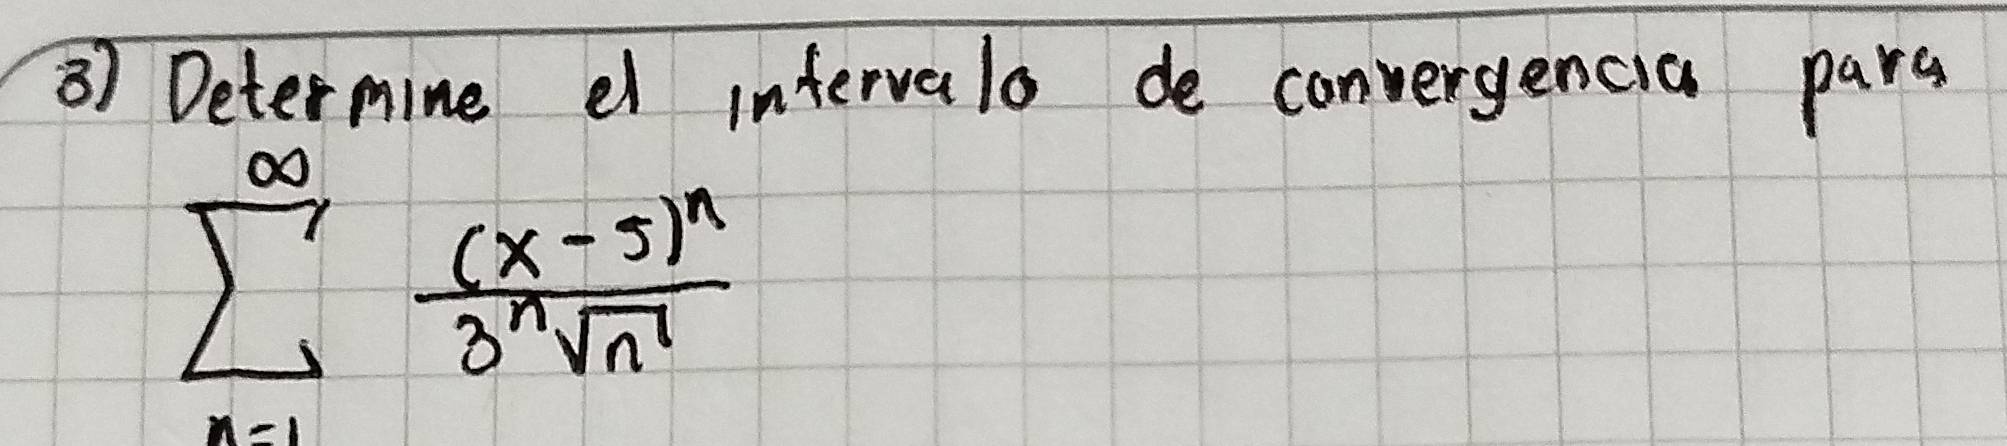 3) Determine el intervalo de convergencia para
∞
∑ (x-5)ⁿ / 3ⁿ√n
n=1